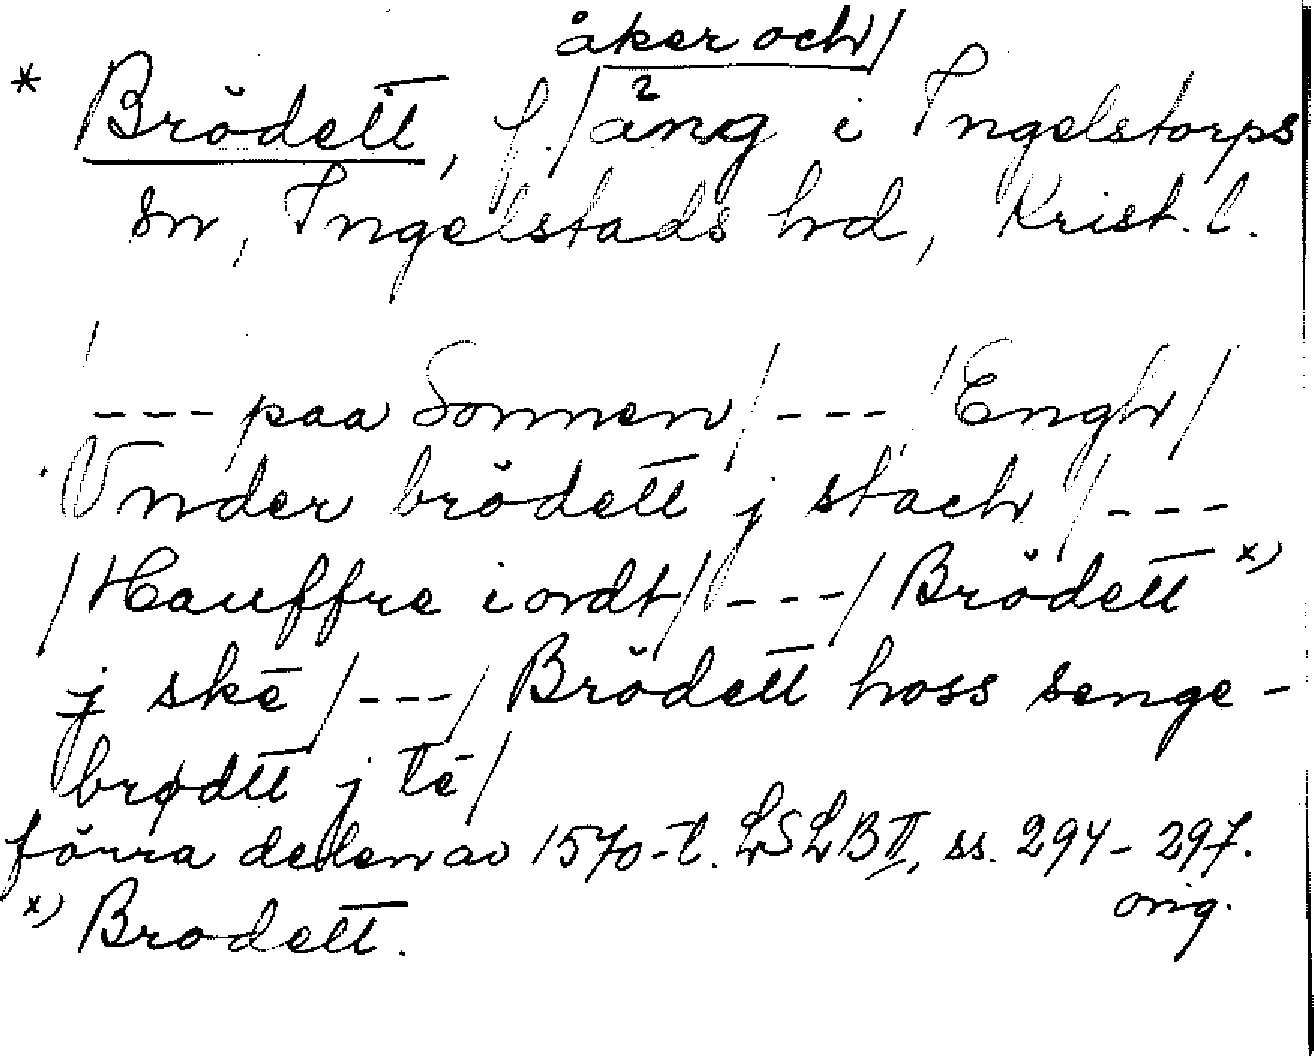 åker och/
* Brödett, f./äng i Ingelstorps
sn, Ingelstads hd, Krist. l.
--- paa Sonnen/ --- /Engh/
Vnder brödett j stach /---
/Hauffre iordt/ ---/ Brödett x)
j skē /---/ Brödett hoss senge-
brødtt j tē/
förra delen av 1570-t. LSLB II, ss. 294-297.
orig.
x) Brodett.